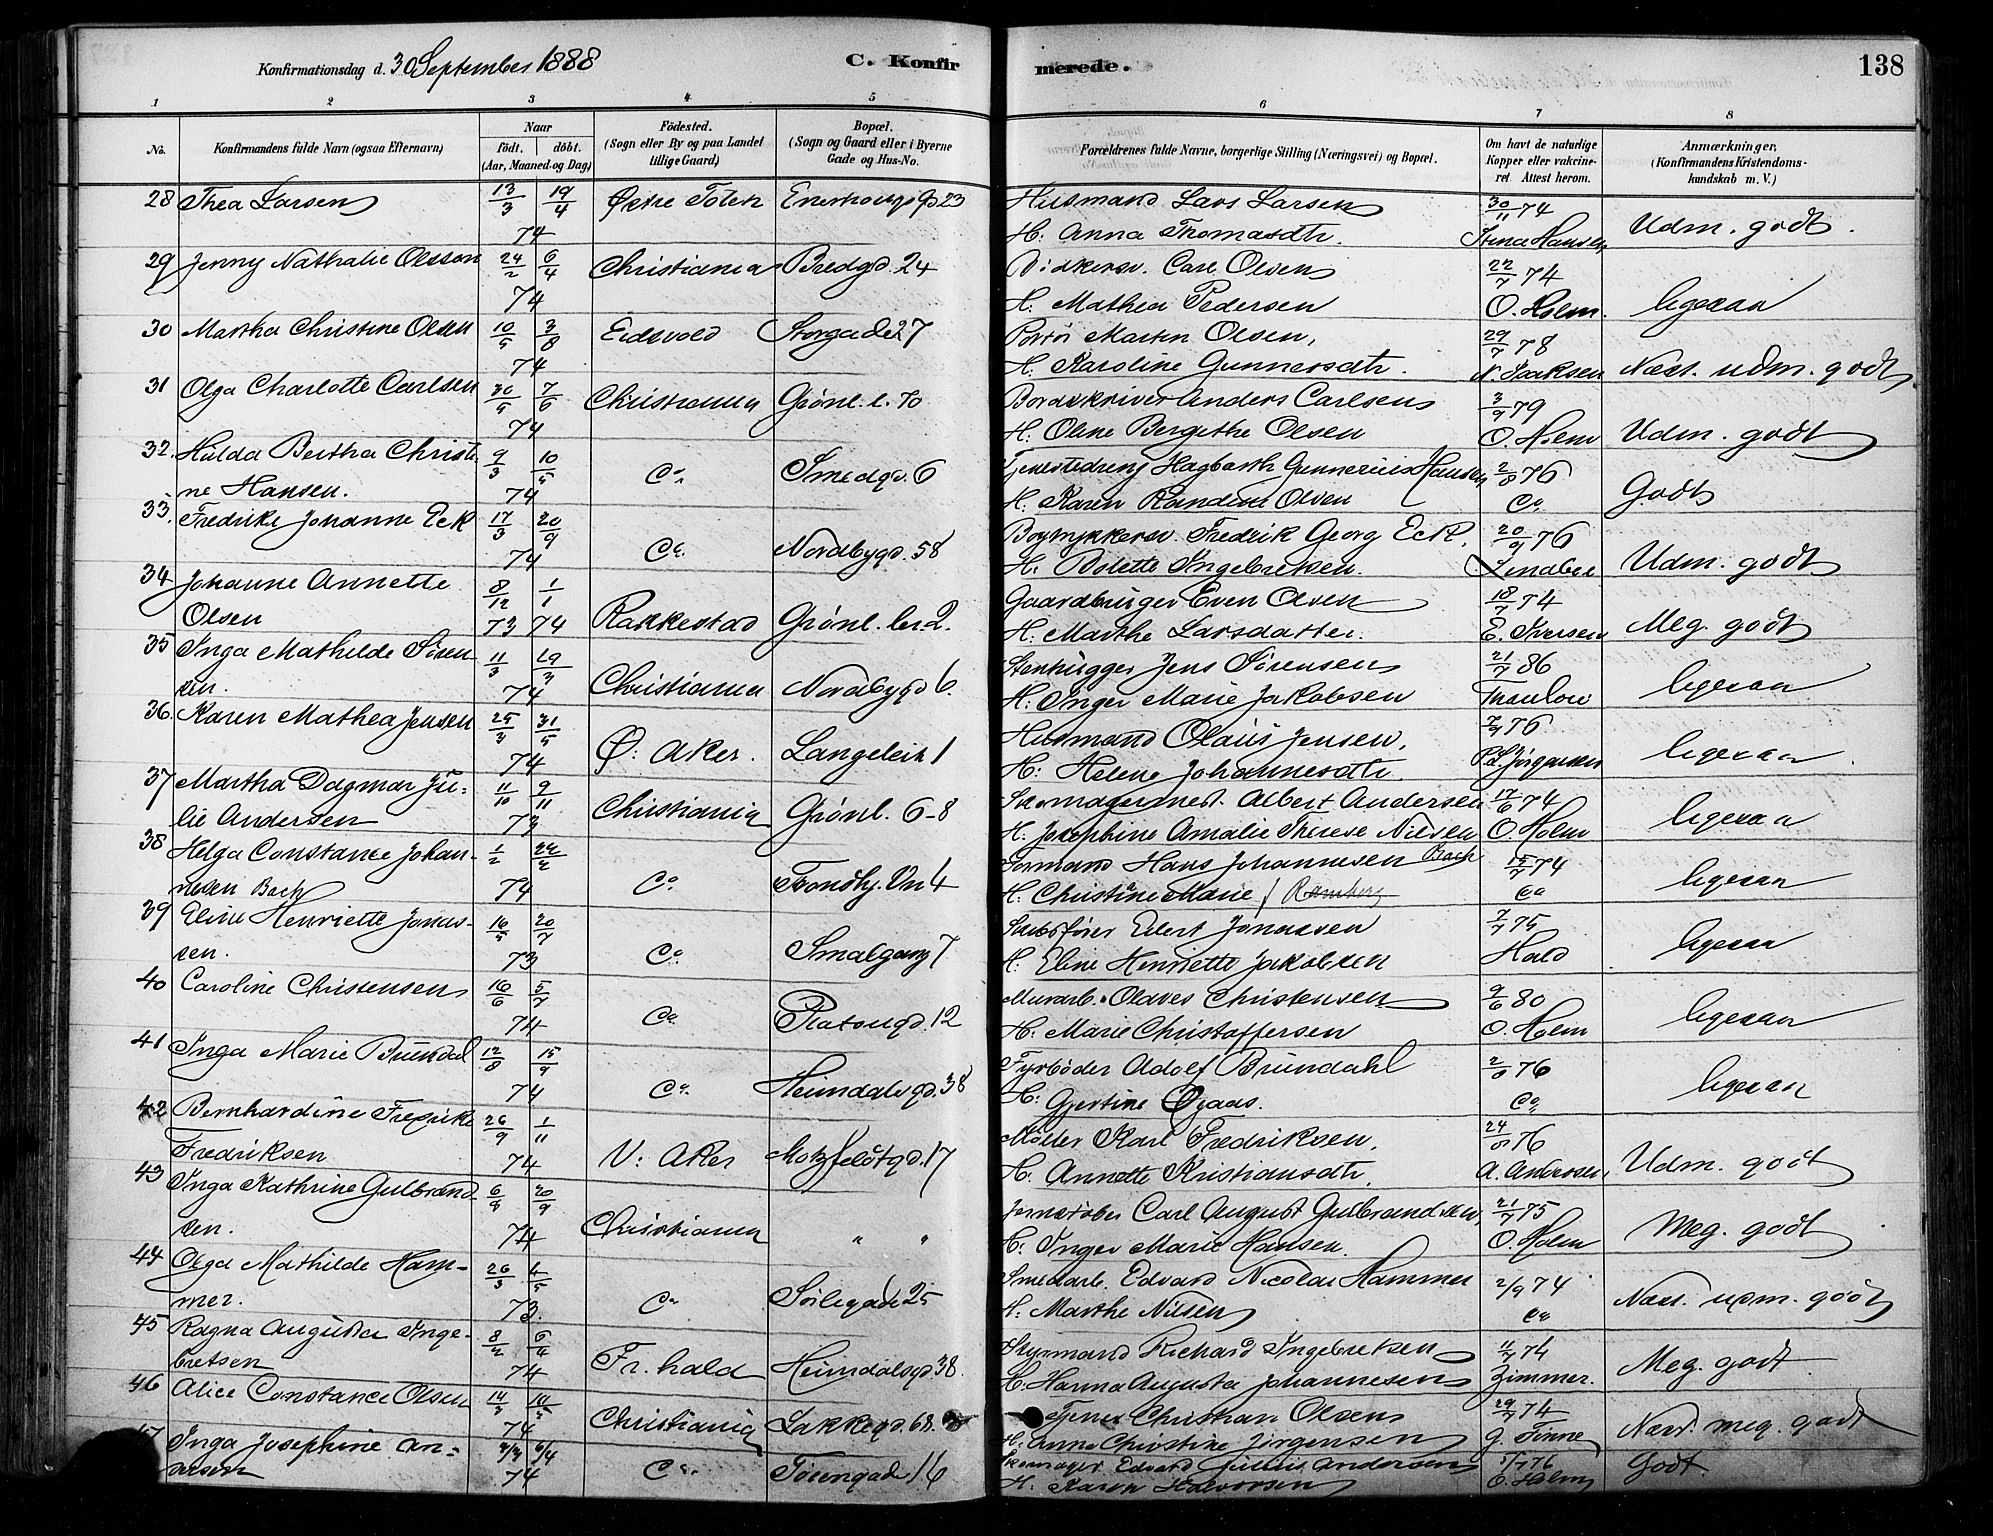 Konfirmationsdag d. 30 September 1888
C. Konfirmerede.
138
1 2 3 4 5 6 7 8
No. Konfirmandens fulde Navn (ogsaa Efternavn) Naar Födt. döbt. (Aar, Maaned og Dag) Födested. (Sogn eller By og paa Landet tillige Gaard) Bopæl. (Sogn og Gaard eller i Byerne Gade og Hus-No. Forældrenes fulde Navne, borgerlige Stilling (Næringsvei) og Bopæl. Om havt de naturlige Kopper eller vakcineret Attest herom. Anmærkninger, (Konfirmandens Kristendomskundskab m. V.)
28 Thea Larsen 13/3 19/4 Østre Toten 23 Husmand Lars Larsen 30/11 74
74 H: Anna Thomasdtr. Hansen Udm. godt.
29 Jenny Nathalie Olsson 24/2 6/4 Christiania Bredgd. 24 Carl Olsen 22/7 74
74 H. Mathea Pedersen O. Holm. ligesaa
30 Martha Christine Olsen 10/5 3/8 Eidsvold Storgade 27 Martin Olsen, 29/7 78
74 H. Karoline Gunnersdtr. N. Isaksen Næst. udm. godt
31 Olga Charlotte Carlsen 30/5 7/6 Christiania Grønl. l. 70 Bordskriver Anders Carlsen 3/9 79
74 H. Oline Bergithe Olsen O. Holm Udm. godt
32. Hulda Bertha Christi- 9/3 10/5 Co. Smedgd. 6 Tjenestedreng Hagbarth Gunnerius Hansen 2/8 76
ne Hansen. 74 H. Karen Randine Olsen Co Godt
33. Fredrike Johanne Eck 17/3 20/9 Co. Nordbygd. 58 Fredrik Georg Eck, 20/9 76
74 H. Bolette Ingebretsen. Udm. godt
34 Johanne Annette 8/12 1/1 Gaardbruger Even Olsen 18/7 74
Olsen 73 74 Rakkestad Grønl. 2. H. Marthe Larsdatter. E. Iversen Meg. godt
35 Inga Mathilde Søren- 11/3 29/3 Stenhugger Jens Sørensen 21/7 86
sen. 74 Christiania Nordbygd 6. H: Inger Marie Jakobsen Thaulow ligesaa
36. Karen Mathea Jensen 25/3 31/5 Husmand Olaus Jensen, 7/7 76
74 Ø. Aker. Langeleik 1 H: Helene Johannesdtr. Jørgensen ligesaa
37 Martha Dagmar Ju- 11/10 9/11 Skomagermest. Albert Andersen 17/6 74
lie Andersen 73 Christiania Grønl. 6-8 H. Josephine Amalie Therese Nielsen O. Holm ligesaa
38 Helga Constance Johan- 1/2 Formand Hans Johannesen Bach 15/7 74
nesen Bach 74 Co 4 H. Christine Marie Ramberg Co ligesaa
39 Eline Henriette Jonas- 20/7 Skibsfører Eilert Jonassen 7/7 75
sen. 73 Co. Smalgang 7 H. Eline Henriette Jakobsen Hald ligesaa
40 Caroline Christensen 16/6 5/7 Murarb. Olaves Christensen 9/6 80
74 Co. Platougd. 12 H. Marie Christoffersen O. Holm ligesaa
41 Inga Marie 12/8 15/9 Fyrbøder Adolf Brundahl 76
74 Co. Heimdalsgd. 38 H. Gjertine Co ligesaa
42 Bernhardine Fredrike 26/9 1/11 Møller Karl Fredriksen, 24/8 76
Fredriksen 74 V: Aker Motzfeldtgd. 17 H. Annette Kristiansdtr, Udm. godt
43 Inga Kathrine Gulbrand- 20/9 Carl August Gulbrandsen, 21/7 75
sen. 74 Christiania " " H. Inger Marie Hansen. O. Holm Meg. godt
44 Olga Mathilde Ham- 26/3 4/5 Smedarb. Edvard Nicolai Hammer 2/9 74
mer. 73. Co Sørlegade 25 H. Marthe Nilsen Co Næst. udm. godt
45 Ragna Augusta Inge- 8/2 6/4 Styrmand Richard Ingebretsen 74
bretsen 74 Fr. hald Heimdalsgd 38. H. Hanna Augusta Johannesen Zimmer. Meg. godt
46 Alice Constance Olsen Christiania Lakkegd. 68. Tjener Christian Olsen 29/7 74
74 H. Anne Christine Jörgensen J. Finne Næst. meg. godt
Inga Josephine An- 6/4 Skomager Edvard Julius Andersen 76
dersen 74 Co. Tøiengad 16 H. Karen Halvorsen O. Holm Godt.